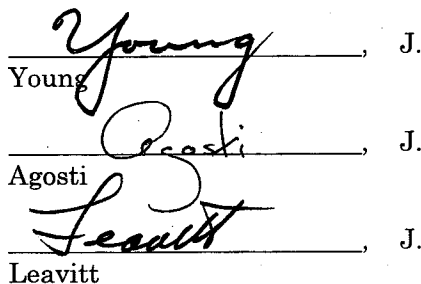 Young, J.
Young
Agosti, J.
Agosti
Leavitt, J.
Leavitt